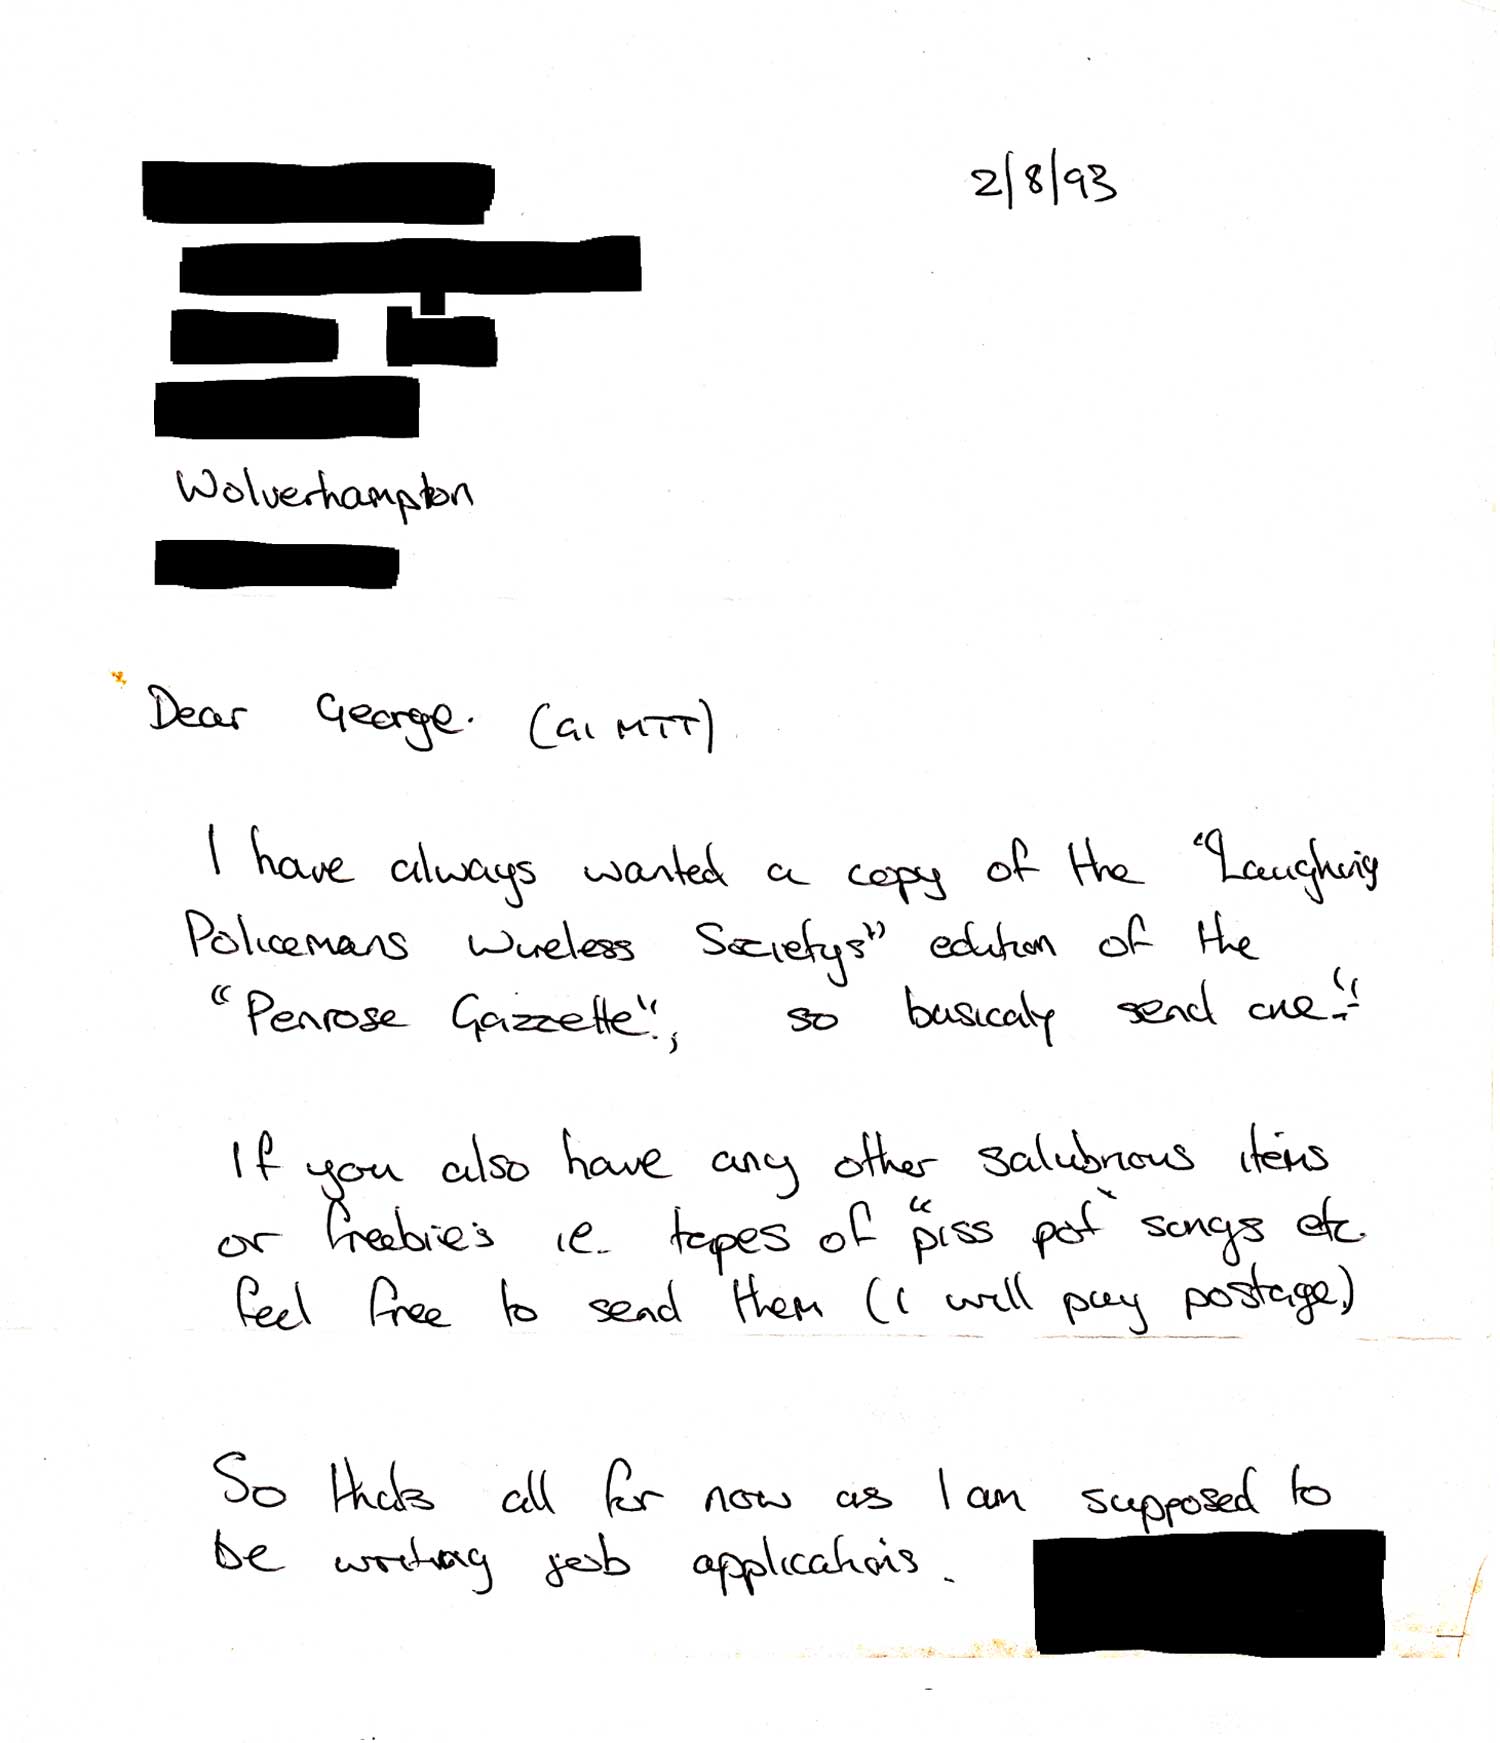 2/8/93
Wolverhampton
Dear George. (G1 MTT)
I have always wanted a copy of the "Laughing
Policemans Wireless Societys" edition of the
"Penrose Gazzette"., so basicaly send one"!
If you also have any other salubrious items
or freebie's ie. tapes of "piss pot" songs etc.
feel free to send them (I will pay postage.)
So thats all for now as I am supposed to
be writing job applications.